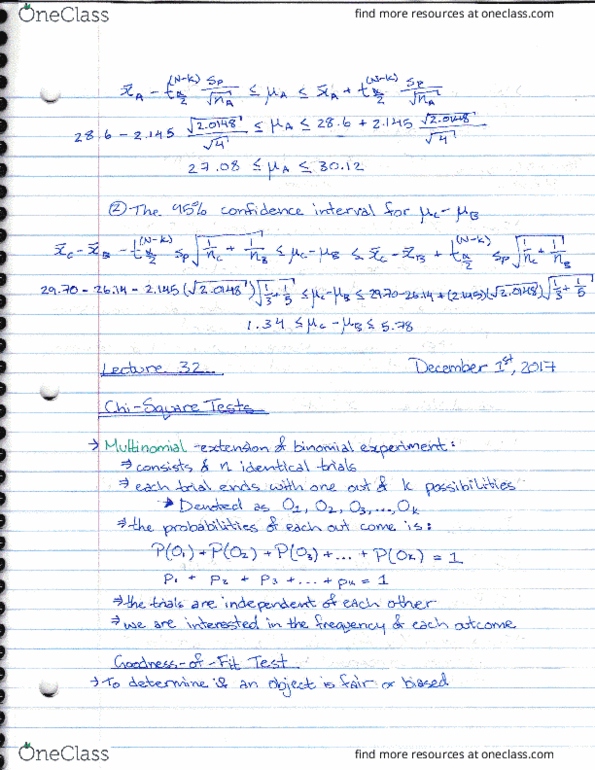 OneClass
find more resources at oneclass.com
x̄A - t(N-k) α/2 Sp/√nA ≤ μA ≤ x̄A + t(N-k) α/2 Sp/√nA
28.6 - 2.145 √2.0148/√4 ≤ μA ≤ 28.6 + 2.145 √2.0148/√4
27.08 ≤ μA ≤ 30.12
② The 95% confidence interval for μC - μB
x̄C - x̄B - t(N-k) α/2 Sp √1/nC + 1/nB ≤ μC - μB ≤ x̄C - x̄B + t(N-k) α/2 Sp √1/nC + 1/nB
29.70 - 26.14 - 2.145 (√2.0148) √1/3 + 1/5 ≤ μC - μB ≤ 29.70 - 26.14 + (2.145)(√2.0148) √1/3 + 1/5
1.34 ≤ μC - μB ≤ 5.78
Lecture 32 December 1st, 2017
Chi-Square Tests
→ Multinomial - extension of binomial experiment:
⇒ consists of n identical trials
⇒ each trial ends with one out of k possibilities
➔ Denoted as O1, O2, O3, ..., Ok
⇒ the probabilities of each out come is:
P(O1) + P(O2) + P(O3) + ... + P(Ok) = 1
P1 + P2 + P3 + ... + Pk = 1
⇒ the trials are independent of each other
⇒ we are interested in the frequency of each outcome
Goodness-of-Fit Test
→ To determine if an object is fair or biased
OneClass
find more resources at oneclass.com